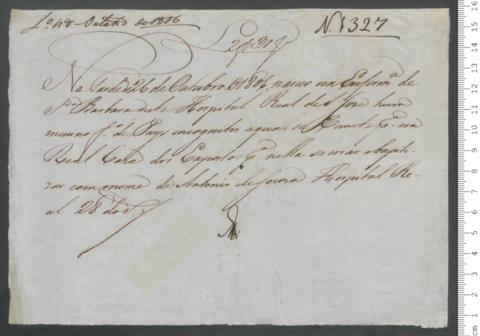 Lº 48 - Outubro de 1806
N. 1327
Na tarde 26 de Outubro 1806, nasceo na Enferm.ª de
Sta Barbara deste Hospital Real de S. Jose hum
menino f.º de Pays incognitos a qual se p.ª na
Real Caza dos Expostos p.ª nella se criar
com o nome de Antonio de Souza Hospital Re-
al 28 do d.º